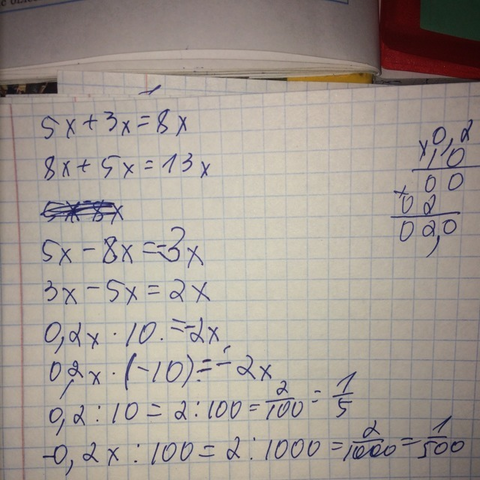 5x+3x=8x
8x+5x=13x
5x-8x=-3x
3x-5x=2x
0,2x·10.=-2x
0,2x·(-10)=-2x
0,2:10=2:100=2/100=1/5
-0,2x:100=2:1000=2/1000=1/500
x0,2
1,0
+00
02
02,0